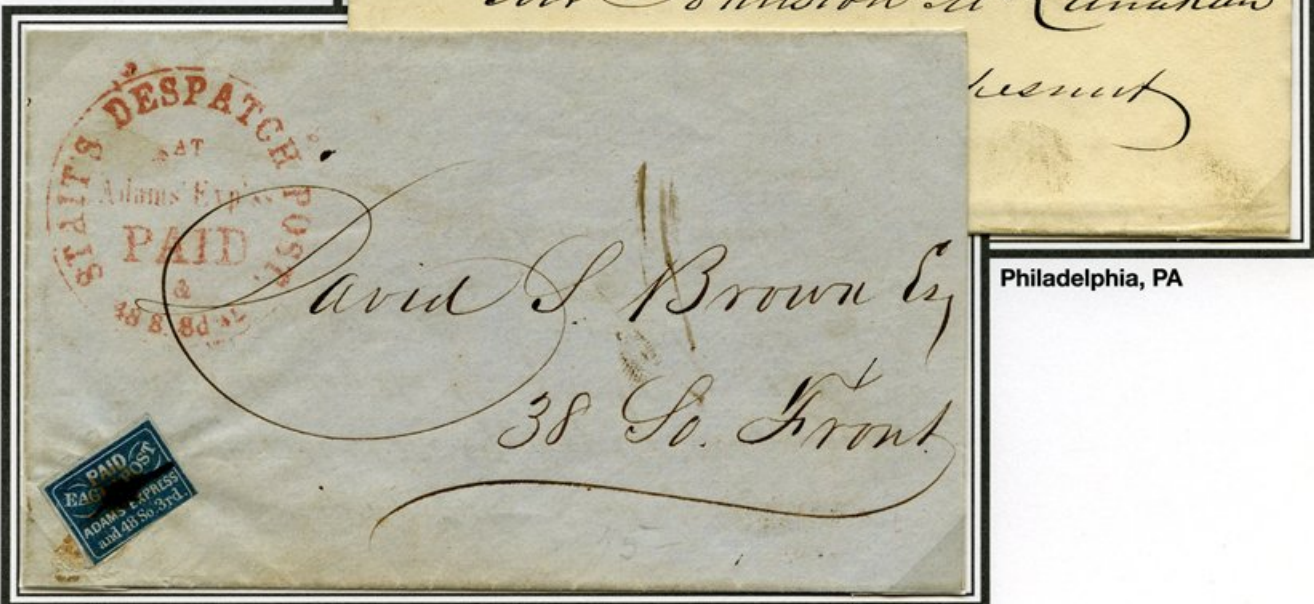 Johnston
hesnut
STAIT'S DESPATCH POST.
AT
Adams' Exp
PAID
&
48 S. 3d
David S. Brown Esq
38 So. Front
PAID
EAGLE POST
ADAMS EXPRESS
and 48 So. 3rd.
Philadelphia, PA